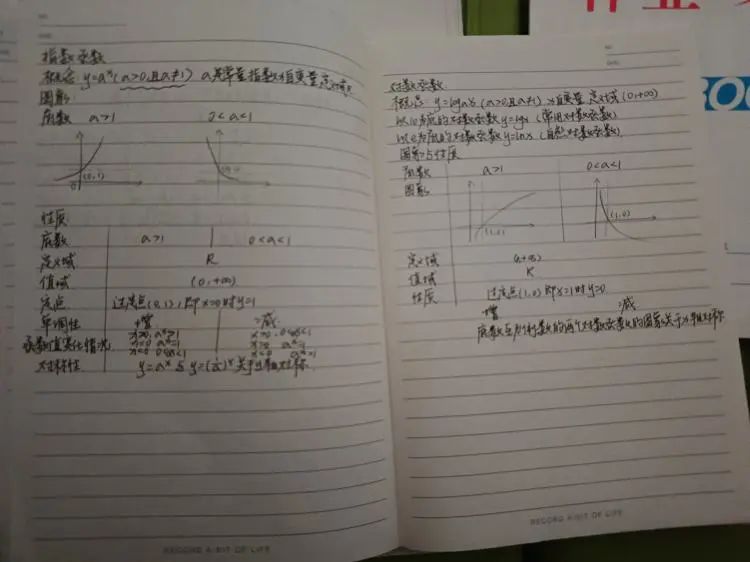 指数函数
概念: y=aˣ(a>0,且a≠1) a是常量 指数x自变量 定义域R
图象:
底数 a>1 0<a<1
(0,1)
0
性质
底数 a>1 0<a<1
定义域 R
值域 (0,+∞)
定点 过定点(0,1),即x=0时y=1
单调性 增 减
函数值变化情况 x>0 aˣ>1 x>0 0<aˣ<1
x=0 aˣ=1 x=0 aˣ=1
x<0 0<aˣ<1 x<0 aˣ>1
对称性 y=aˣ与y=(1/a)ˣ关于y轴对称
RECORD A BIT OF LIFE
NO.
DATE
对数函数
概念: y=logax(a>0,且a≠1) x自变量 定义域(0,+∞)
以10为底的对数函数y=lgx(常用对数函数)
以e为底的对数函数y=lnx(自然对数函数)
图象与性质
底数 a>1 0<a<1
图象
(1,0) (1,0)
定义域
值域 R
性质 过定点(1,0)即x=1时y=0
增 减
底数互为倒数的两个对数函数的图象关于x轴对称
RECORD A BIT OF LIFE
作业